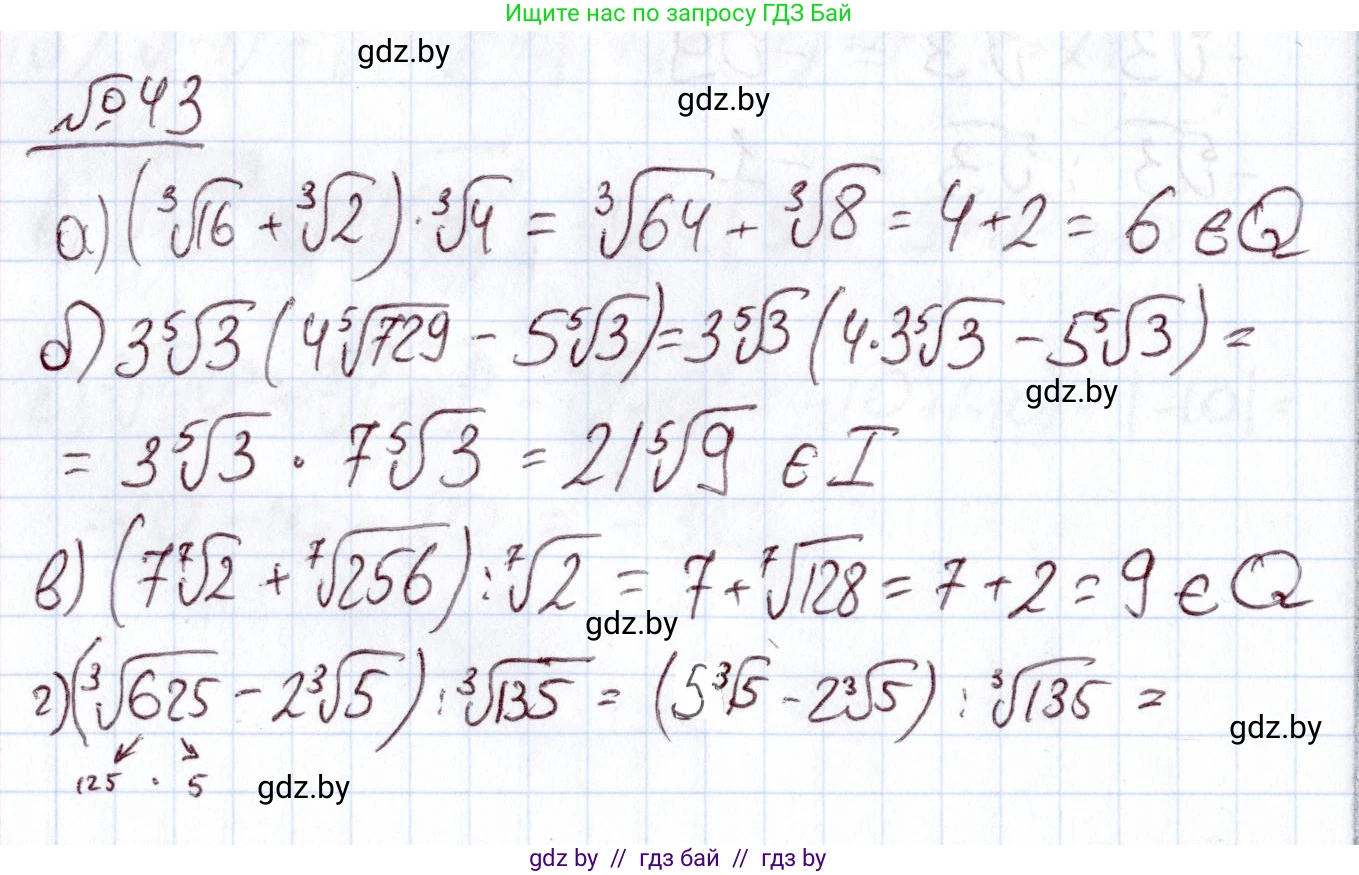 Ищите нас по запросу ГДЗ Бай
gdz.by
gdz.by
№43
а) (∛16 + ∛2) · ∛4 = ∛64 + ∛8 = 4 + 2 = 6 ∈ Q
б) 3⁵√3 (4⁵√729 - 5⁵√3) = 3⁵√3 (4·3⁵√3 - 5⁵√3) =
gdz.by
= 3⁵√3 · 7⁵√3 = 21⁵√9 ∈ I
в) (7⁷√2 + ⁷√256) : ⁷√2 = 7 + ⁷√128 = 7 + 2 = 9 ∈ Q
gdz.by
г) (∛625 - 2∛5) : ∛135 = (5∛5 - 2∛5) : ∛135 =
gdz.by
125 · 5
gdz.by
gdz by // гдз бай // гдз by